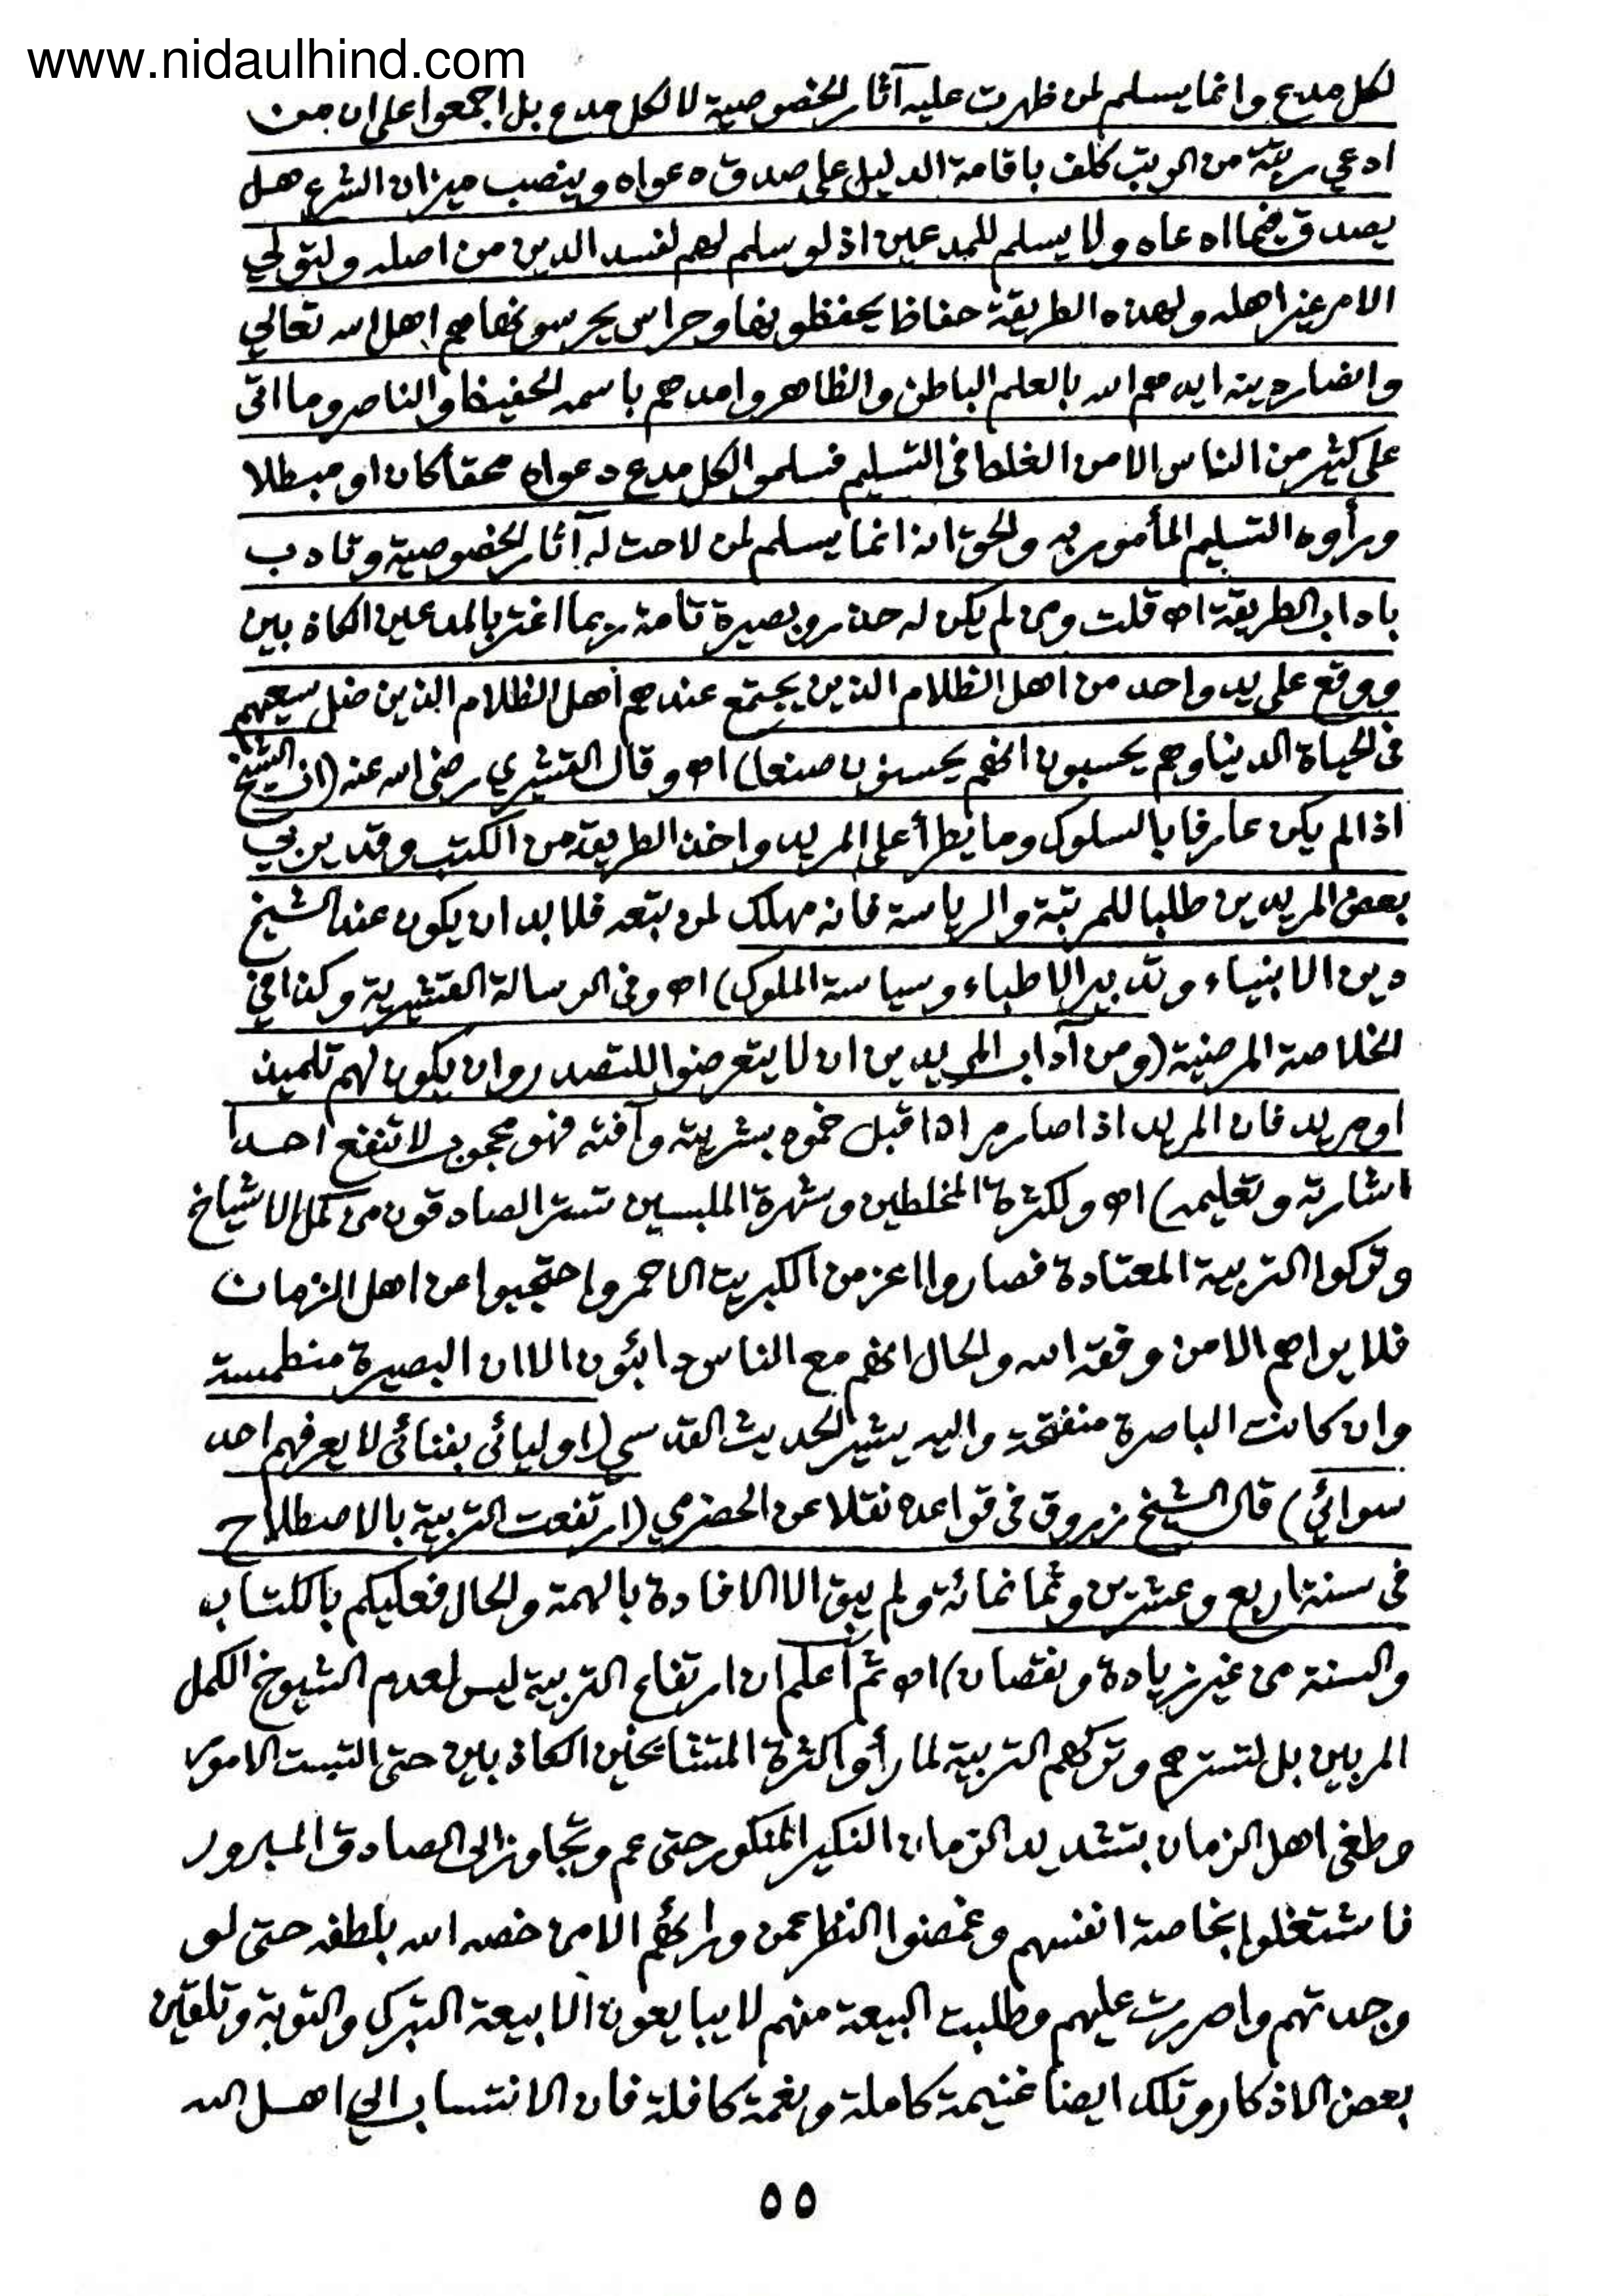 www.nidaulhind.com
لكل مدع وانما يسلم لمن ظهرت عليه آثار الخصوصية لا لكل مدع بل اجمعوا على ان من
ادعى رتبة من الرتب كلف باقامة الدليل على صدق دعواه وينصب ميزان الشرع هل
يصدق فيما ادعاه ولا يسلم للمدعين اذ لو سلم لهم لفسد الدين من اصله ولتولى
الامر غير اهله ولهذه الطريقة حفاظ يحفظونها وحراس يحرسونها هم اهل الله تعالى
وانصار دينه ايدهم الله بالعلم الباطن والظاهر وامدهم باسمه الحفيظ والناصر وما اتى
على كثير من الناس الا من الغلط فى التسليم فسلموا لكل مدع دعواه محقا كان او مبطلا
ورأوه التسليم المأمور به والحق انه انما يسلم لمن لاحت له آثار الخصوصية وتادب
باداب الطريقة اه قلت ومن لم يكن له حذر وبصيرة تامة ربما اغتر بالمدعين الكاذبين
ووقع على يد واحد من اهل الظلام الذين يجتمع عندهم أهل الظلام الذين ضل سعيهم
فى الحياة الدنيا وهم يحسبون انهم يحسنون صنعا) اه وقال القشيرى رضى الله عنه (ان الشيخ
اذا لم يكن عارفا بالسلوك وما يطرأ على المريد واخذ الطريقة من الكتب وقد يربي
بعض المريدين طلبا للمرتبة والرياسة فانه مهلك لمن يتبعه فلا بد ان يكون عند الشيخ
دين الانبياء وتدبير الاطباء وسياسة الملوك) اه وفى الرسالة القشيرية وكذا في
الخلاصة المرضية (ومن آداب المريدين ان لا يتعرضوا للتصدر وان يكون لهم تلميذ
او مريد فان المريد اذا صار مرادا قبل خموه بشريته وآفته فهو محجوب لا تنفع احدا
اشارته وتعليمه) اه ولكثرة المخلطين وشهرة الملبسين تستر الصادقون من كمل الاشياخ
وتركوا التربية المعتادة فصاروا اعز من الكبريت الاحمر واحتجبوا عن اهل الزمان
فلا يراهم الا من وفقه الله والحال انهم مع الناس دائبون الا ان البصيرة منطمسة
وان كانت الباصرة منفتحة واليه يشير الحديث القدسي (اوليائى بفنائى لا يعرفهم احد
سوائي) قال الشيخ زروق فى قواعده نقلا عن الحضرمي (ارتفعت التربية بالاصطلاح
فى سنة اربع وعشرين وثمانمائة ولم يبق الا الافادة بالهمة والحال فعليكم بالكتاب
والسنة من غير زيادة ونقصان) اه ثم أعلم ان ارتفاع التربية ليس لعدم الشيوخ الكمل
المربين بل لتسترهم وتركهم التربية لما رأوا كثرة المتشائخين الكاذبين حتى التبست الامور
وطغى اهل الزمان بتشديد الزمان النكير المنكور حتى عم وتجاوز الى الصادق المبرور
فاشتغلوا بخاصة انفسهم وغمضوا النظر عمن ورائهم الا من خصه الله بلطفه حتى لو
وجدتهم واصررت عليهم وطلبت البيعة منهم لا يبايعون الا بيعة التبرك والتوبة وتلقين
بعض الاذكار وتلك ايضا غنيمة كاملة ونعمة كافلة فان الانتساب الى اهل الله
٥٥